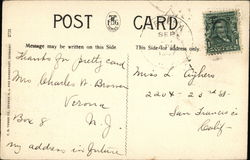 POST CARD
Message may be written on this Side
This Side for address only.
SEP
Thanks for pretty card
Mrs. Charles A Brown
Verona
Box 8 N.J.
my address in future
Miss L
2204 - 23rd St
San Francisco
Calif -